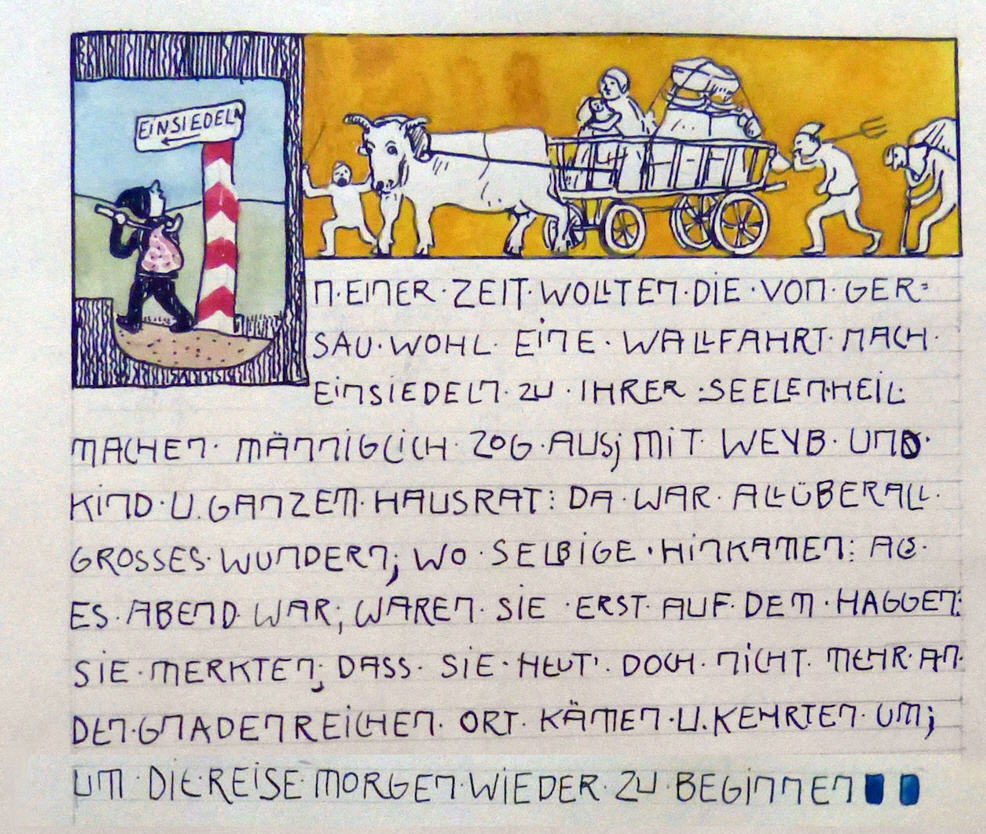 EINSIEDELN
N·EINER·ZEIT·WOLLTEN·DIE·VON·GER=
SAU·WOHL·EINE·WALLFAHRT·NACH·
EINSIEDELN·ZU·IHRER·SEELENHEIL·
MACHEN·MÄNNIGLICH·ZOG·AUS; MIT·WEYB·UND·
KIND·U.GANZEM·HAUSRAT: DA·WAR·ALLÜBERALL·
GROSSES·WUNDERN; WO·SELBIGE·HINKAMEN: ALS·
ES·ABEND·WAR; WAREN·SIE·ERST·AUF·DEM·HAGGEN:
SIE·MERKTEN; DASS·SIE·HEUT'·DOCH·NICHT·MEHR·AN·
DEN·GNADENREICHEN·ORT·KÄMEN·U.KEHRTEN·UM;
UM·DIE·REISE·MORGEN·WIEDER·ZU·BEGINNEN